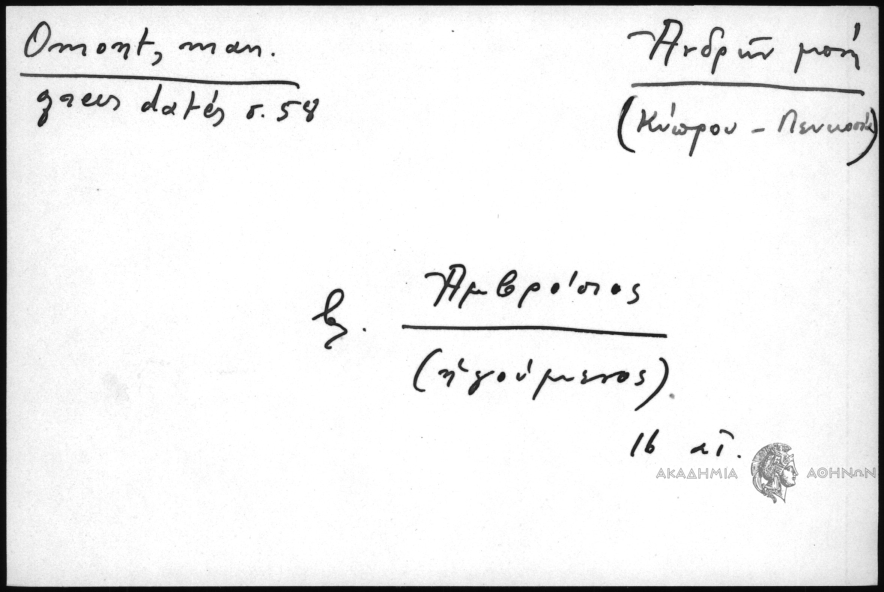 Omont, man.
grecs datés σ. 58
Ἀνδρῶν μονή
(Κύπρου - Λευκοσία)
βλ. Ἀμβρόσιος
(ἡγούμενος).
16 αἰ.
ΑΚΑΔΗΜΙΑ ΑΘΗΝΩΝ